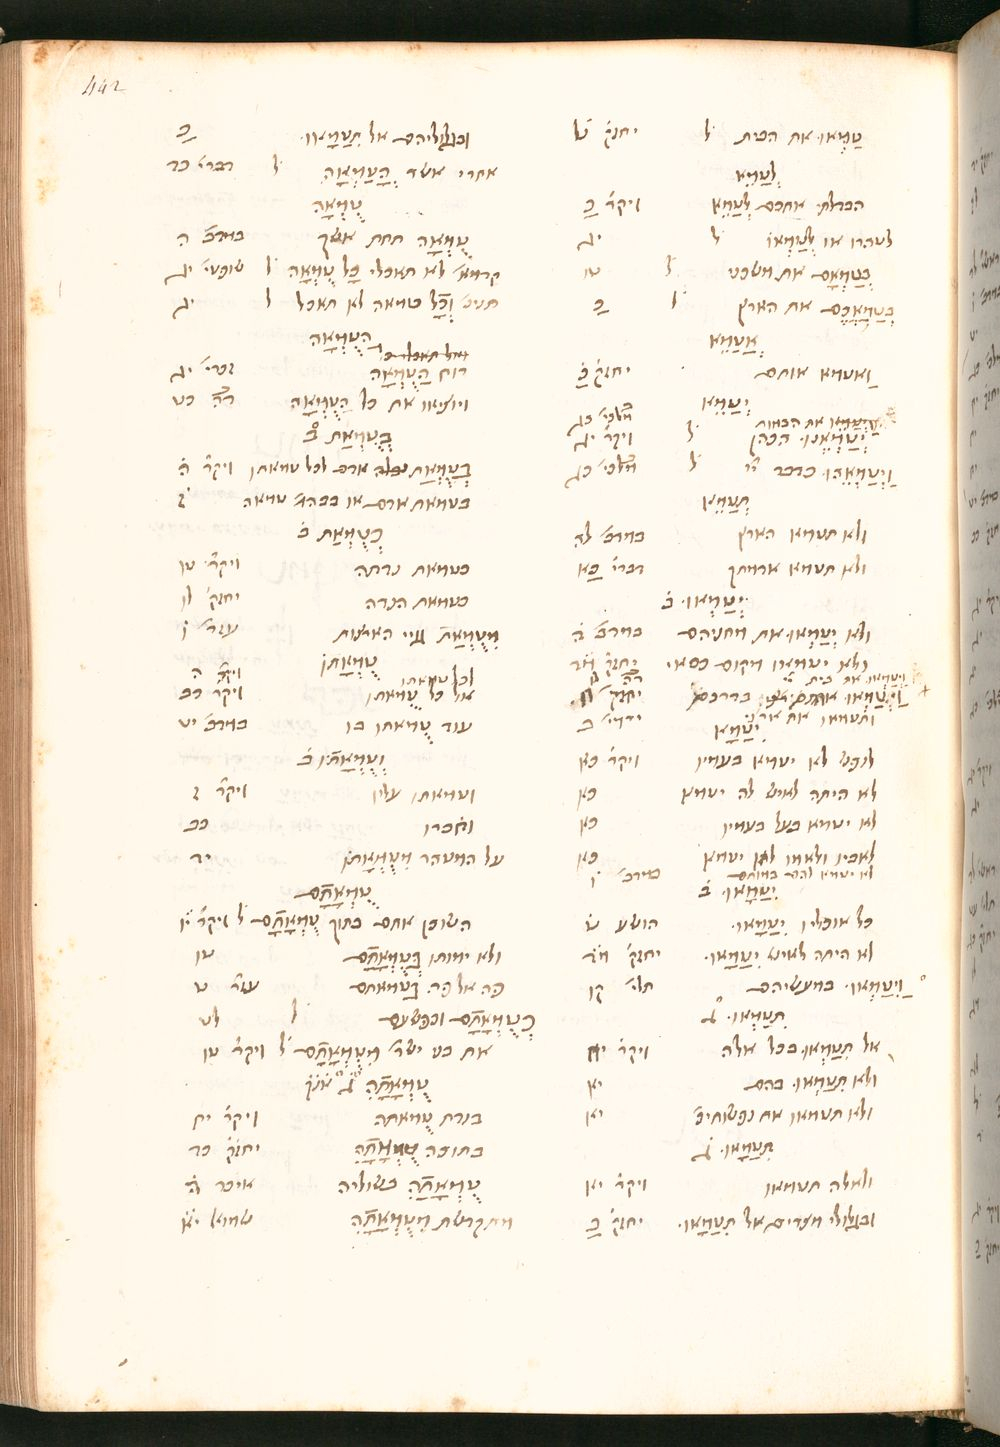 442
טַמְּאוּ את הבית ל יחזק׳ ט
לְטַמֵּא
הבדלתי אתכם לְטַמֵּא ויקר׳ כ
לטהרו או לְטַמְּאוֹ ל יג
בְּטַמְּאָם את משכני ל טו
בְּטַמַּאֲכֶם את הארץ ל כ
אֲטַמֵּא
ואטמא אותם יחזק׳ כ
יְטַמֵּא
ויטמא את הבמות מלכי׳ כג
יְטַמְּאֶנּוּ הכהן ל ויקר׳ יג
וַיְטַמְּאֵהוּ כדבר יי׳ ל מלכי׳ כג
תְטַמֵּא
ולא תטמא הארץ במדב׳ לה
ולא תטמא אדמתך דברי׳ כא
יְטַמְּאוּ ב
ולא יְטַמְּאוּ את מחניהם במדב׳ ה
ולא יטמאו מקום כסאי יחזק׳
ויטמאו את בית יי׳
וַיְטַמְּאוּ אותה בדרכם יחזק׳
ותטמאו את ארצי ירמי׳ ב
יִטַּמָּא
לנפש לא יטמא בעמיו ויקר׳ כא
לא היתה לאיש לה יטמא כא
לא יטמא בעל בעמיו כא
לאביו ולאמו לא יטמא כא
לא יטמא להם במותם במדב׳ ו
יִטַּמָּאוּ ב
כל אוכליו יִטַּמָּאוּ הושע ט
לא היתה לאיש יִטַּמָּאוּ יחזק׳ מד
וַיִּטְמְאוּ במעשיהם תלי׳ קו
תִּטַּמְּאוּ ג
אל תִטַּמְּאוּ בכל אלה ויקר׳ יח
ולא תִטַּמְּאוּ בהם יא
ולא תטמאו את נפשותיכ׳ יא
תִטַּמָּאוּ ג
ולאלה תטמאו ויקר׳ יא
ובגלולי מצרים אל תִטַּמָּאוּ יחזק׳ כ
ובגלוליהם אל תִטַּמָּאוּ כ
אחרי אשר הֻטַּמָּאָה ל דברי׳ כד
טֻמְאָה
טֻמְאָה תחת אישך במדב׳ ה
קדמא׳ לא תאכלי כָּל טֻמְאָה ל שופטי׳ יג
תנינ׳ וְכָל טמאה לא תאכל ל יג
הַטֻּמְאָה
ואל תאכל כל
רוח הַטֻּמְאָה זכרי׳ יג
ויוציאו את כל הַטֻּמְאָה דה׳ כט
בְּטֻמְאַת ב
בְּטֻמְאַת נבלה אדם לכל טמאתו ויקר׳ ה
בטמאת אדם או בבהמ׳ טמאה ז
כְּטֻמְאַת ב
כטמאת נדתה ויקר׳ טו
כטמאת הנדה יחזק׳ לו
מִטֻּמְאַת גויי הארצות עזר׳ ו
טֻמְאָתוֹ
לכל טמאתו ויקר׳ ה
או כל טֻמְאָתוֹ ויקר׳ כב
עוד טֻמְאָתוֹ בו במדב׳ יט
וְטֻמְאָתוֹ ב
וטמאתו עליו ויקר׳ ז
וחברו כב
על המטהר מִטֻּמְאָתוֹ יד
טֻמְאָתָם
השוכן אתם בתוך טֻמְאָתָם ל ויקר׳ יו
ולא ימותו בְּטֻמְאָתָם טו
פה אל פה בְּטֻמְאָתָם עזר׳ ט
כְּטֻמְאָתָם וכפשעם ל לט
את בני ישר׳ מִטֻּמְאָתָם ל ויקר׳ טו
טֻמְאָתָהּ ג
בנדת טֻמְאָתָהּ ויקר׳ יח
בתוכה טֻמְאָתָהּ יחזק׳ כד
טֻמְאָתָהּ בשוליה איכה ה
מתקדשת מִטֻּמְאָתָהּ שמואל יא